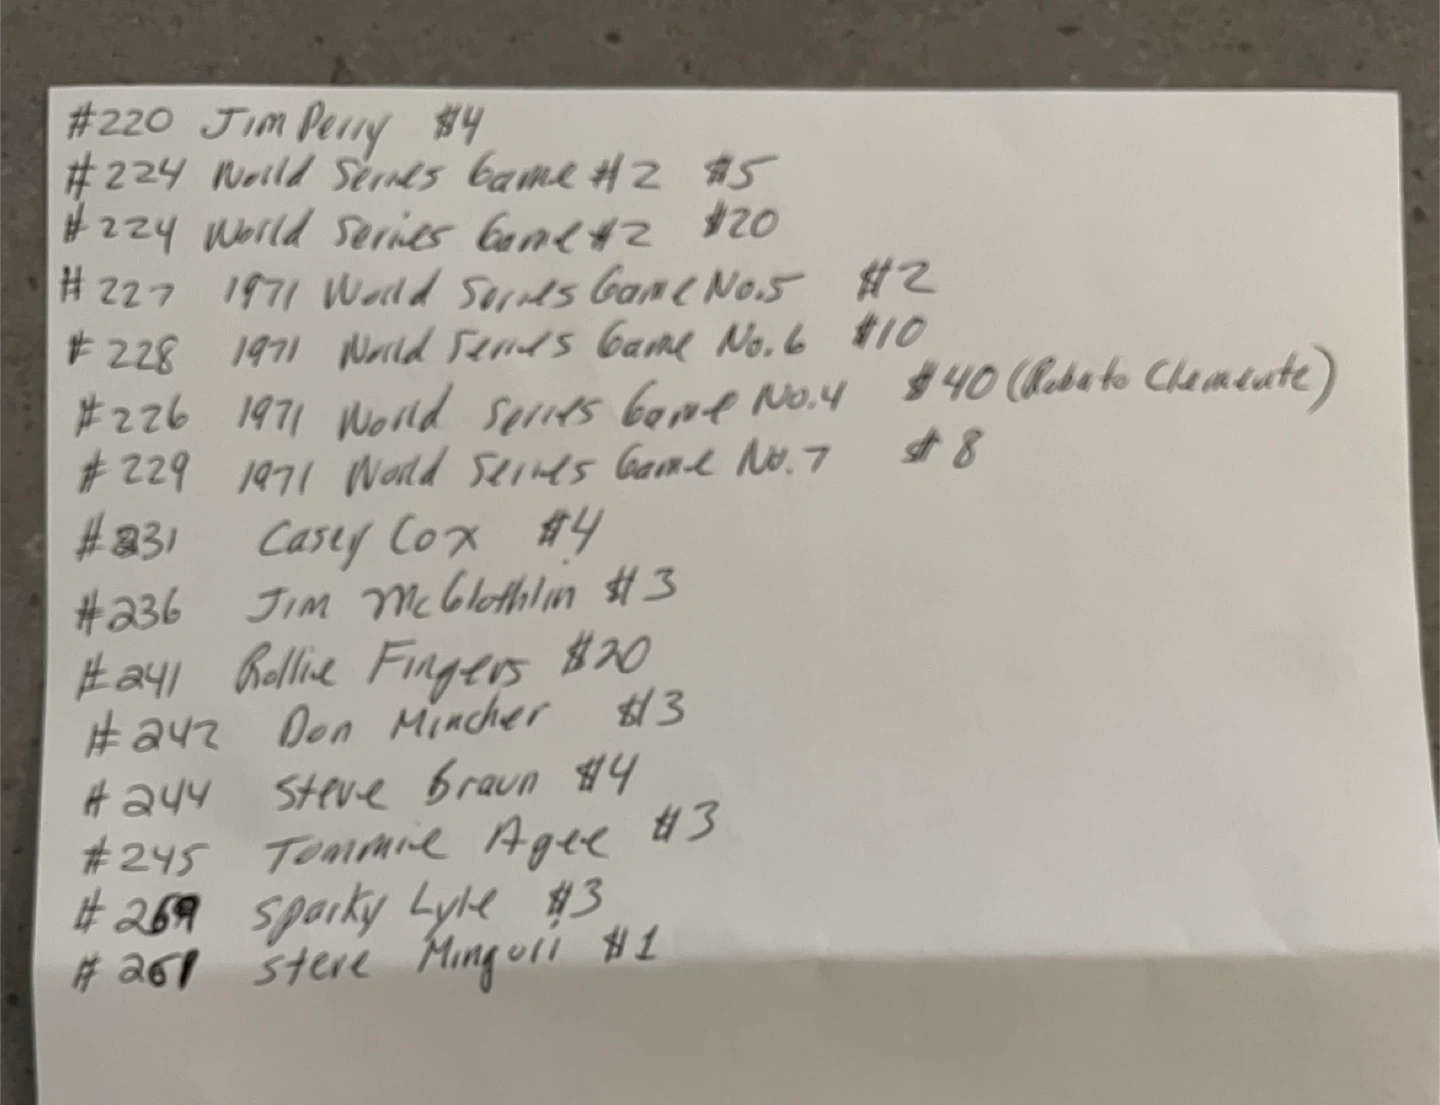 #220 Jim Perry $4
#224 World Series Game #2 $5
#224 World Series Game #2 $20
#227 1971 World Series Game No.5 $2
#228 1971 World Series Game No.6 $10
#226 1971 World Series Game No.4 $40 (Roberto Clemente)
#229 1971 World Series Game No.7 $8
#231 Casey Cox $4
#236 Jim McGlothlin $3
#241 Rollie Fingers $20
#242 Don Mincher $3
#244 Steve Braun $4
#245 Tommie Agee $3
#259 Sparky Lyle $3
#261 Steve Mingori $1